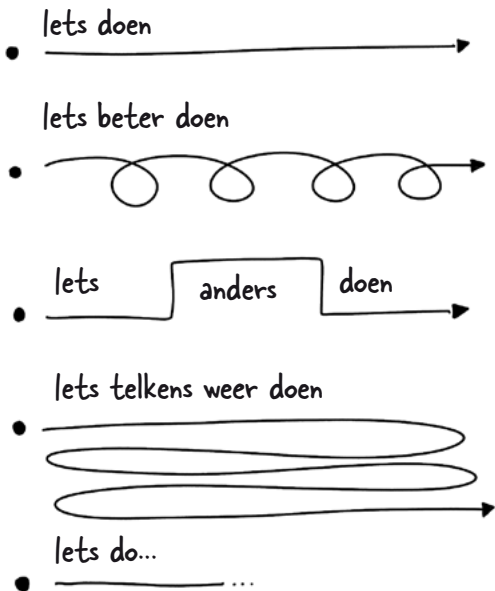 Iets doen
Iets beter doen
Iets anders doen
Iets telkens weer doen
Iets do...